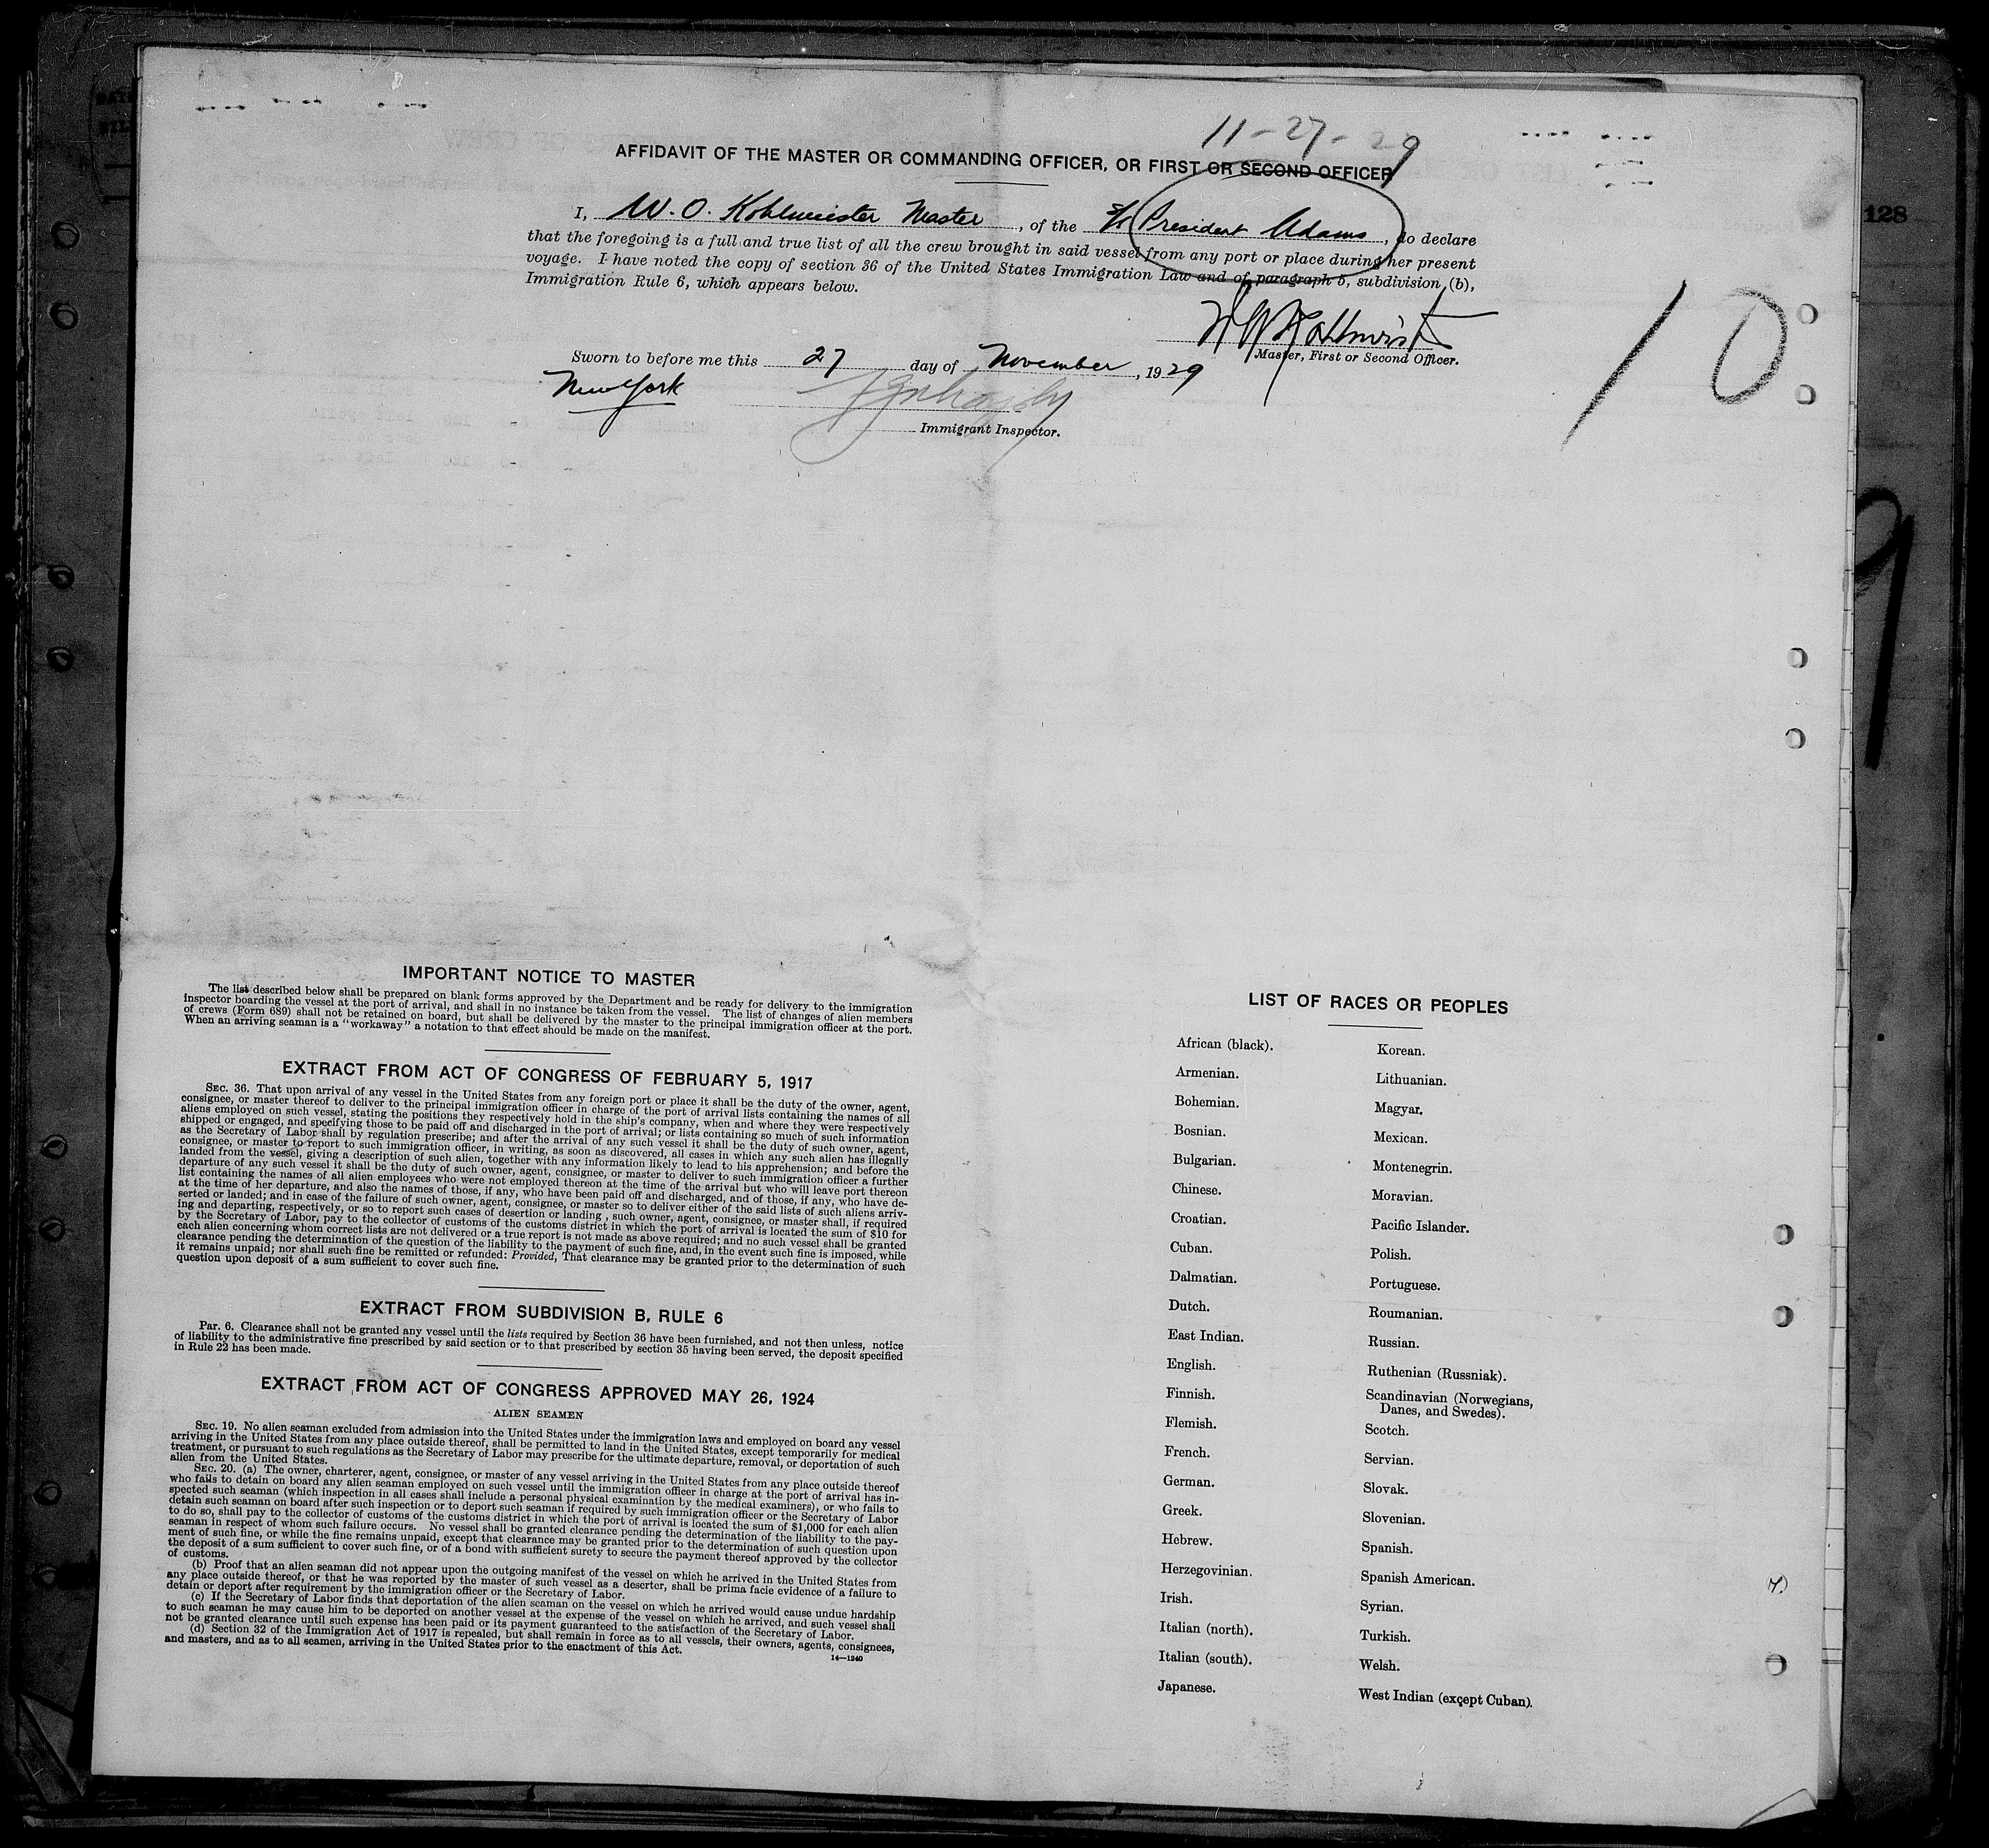 11-27-29
AFFIDAVIT OF THE MASTER OR COMMANDING OFFICER, OR FIRST OR SECOND OFFICER
I, W. O. Kohlmeister Master, of the S/S President Adams, do declare
that the foregoing is a full and true list of all the crew brought in said vessel from any port or place during her present
voyage. I have noted the copy of section 36 of the United States Immigration Law and of paragraph 5, subdivision (b),
Immigration Rule 6, which appears below.
Master, First or Second Officer.
Sworn to before me this 27 day of November, 1929
New York
Immigrant Inspector.
128
10
9
IMPORTANT NOTICE TO MASTER
The list described below shall be prepared on blank forms approved by the Department and be ready for delivery to the immigration
inspector boarding the vessel at the port of arrival, and shall in no instance be taken from the vessel. The list of changes of alien members
of crews (Form 689) shall not be retained on board, but shall be delivered by the master to the principal immigration officer at the port.
When an arriving seaman is a "workaway" a notation to that effect should be made on the manifest.
EXTRACT FROM ACT OF CONGRESS OF FEBRUARY 5, 1917
SEC. 36. That upon arrival of any vessel in the United States from any foreign port or place it shall be the duty of the owner, agent,
consignee, or master thereof to deliver to the principal immigration officer in charge of the port of arrival lists containing the names of all
aliens employed on such vessel, stating the positions they respectively hold in the ship's company, when and where they were respectively
shipped or engaged, and specifying those to be paid off and discharged in the port of arrival; or lists containing so much of such information
as the Secretary of Labor shall by regulation prescribe; and after the arrival of any such vessel it shall be the duty of such owner, agent,
consignee, or master to report to such immigration officer, in writing, as soon as discovered, all cases in which any such alien has illegally
landed from the vessel, giving a description of such alien, together with any information likely to lead to his apprehension; and before the
departure of any such vessel it shall be the duty of such owner, agent, consignee, or master to deliver to such immigration officer a further
list containing the names of all alien employees who were not employed thereon at the time of the arrival but who will leave port thereon
at the time of her departure, and also the names of those, if any, who have been paid off and discharged, and of those, if any, who have de-
serted or landed; and in case of the failure of such owner, agent, consignee, or master so to deliver either of the said lists of such aliens arriv-
ing and departing, respectively, or so to report such cases of desertion or landing, such owner, agent, consignee, or master shall, if required
by the Secretary of Labor, pay to the collector of customs of the customs district in which the port of arrival is located the sum of $10 for
each alien concerning whom correct lists are not delivered or a true report is not made as above required; and no such vessel shall be granted
clearance pending the determination of the question of the liability to the payment of such fine, and, in the event such fine is imposed, while
it remains unpaid; nor shall such fine be remitted or refunded: Provided, That clearance may be granted prior to the determination of such
question upon deposit of a sum sufficient to cover such fine.
EXTRACT FROM SUBDIVISION B, RULE 6
Par. 6. Clearance shall not be granted any vessel until the lists required by Section 36 have been furnished, and not then unless, notice
of liability to the administrative fine prescribed by said section or to that prescribed by section 35 having been served, the deposit specified
in Rule 22 has been made.
EXTRACT FROM ACT OF CONGRESS APPROVED MAY 26, 1924
ALIEN SEAMEN
SEC. 19. No alien seaman excluded from admission into the United States under the immigration laws and employed on board any vessel
arriving in the United States from any place outside thereof, shall be permitted to land in the United States, except temporarily for medical
treatment, or pursuant to such regulations as the Secretary of Labor may prescribe for the ultimate departure, removal, or deportation of such
alien from the United States.
SEC. 20. (a) The owner, charterer, agent, consignee, or master of any vessel arriving in the United States from any place outside thereof
who fails to detain on board any alien seaman employed on such vessel until the immigration officer in charge at the port of arrival has in-
spected such seaman (which inspection in all cases shall include a personal physical examination by the medical examiners), or who fails to
detain such seaman on board after such inspection or to deport such seaman if required by such immigration officer or the Secretary of Labor
to do so, shall pay to the collector of customs of the customs district in which the port of arrival is located the sum of $1,000 for each alien
seaman in respect of whom such failure occurs. No vessel shall be granted clearance pending the determination of the liability to the pay-
ment of such fine, or while the fine remains unpaid, except that clearance may be granted prior to the determination of such question upon
the deposit of a sum sufficient to cover such fine, or of a bond with sufficient surety to secure the payment thereof approved by the collector
of customs.
(b) Proof that an alien seaman did not appear upon the outgoing manifest of the vessel on which he arrived in the United States from
any place outside thereof, or that he was reported by the master of such vessel as a deserter, shall be prima facie evidence of a failure to
detain or deport after requirement by the immigration officer or the Secretary of Labor.
(c) If the Secretary of Labor finds that deportation of the alien seaman on the vessel on which he arrived would cause undue hardship
to such seaman he may cause him to be deported on another vessel at the expense of the vessel on which he arrived, and such vessel shall
not be granted clearance until such expense has been paid or its payment guaranteed to the satisfaction of the Secretary of Labor.
(d) Section 32 of the Immigration Act of 1917 is repealed, but shall remain in force as to all vessels, their owners, agents, consignees,
and masters, and as to all seamen, arriving in the United States prior to the enactment of this Act.
14—1240
LIST OF RACES OR PEOPLES
African (black).
Armenian.
Bohemian.
Bosnian.
Bulgarian.
Chinese.
Croatian.
Cuban.
Dalmatian.
Dutch.
East Indian.
English.
Finnish.
Flemish.
French.
German.
Greek.
Hebrew.
Herzegovinian.
Irish.
Italian (north).
Italian (south).
Japanese.
Korean.
Lithuanian.
Magyar.
Mexican.
Montenegrin.
Moravian.
Pacific Islander.
Polish.
Portuguese.
Roumanian.
Russian.
Ruthenian (Russniak).
Scandinavian (Norwegians,
Danes, and Swedes).
Scotch.
Servian.
Slovak.
Slovenian.
Spanish.
Spanish American.
Syrian.
Turkish.
Welsh.
West Indian (except Cuban).